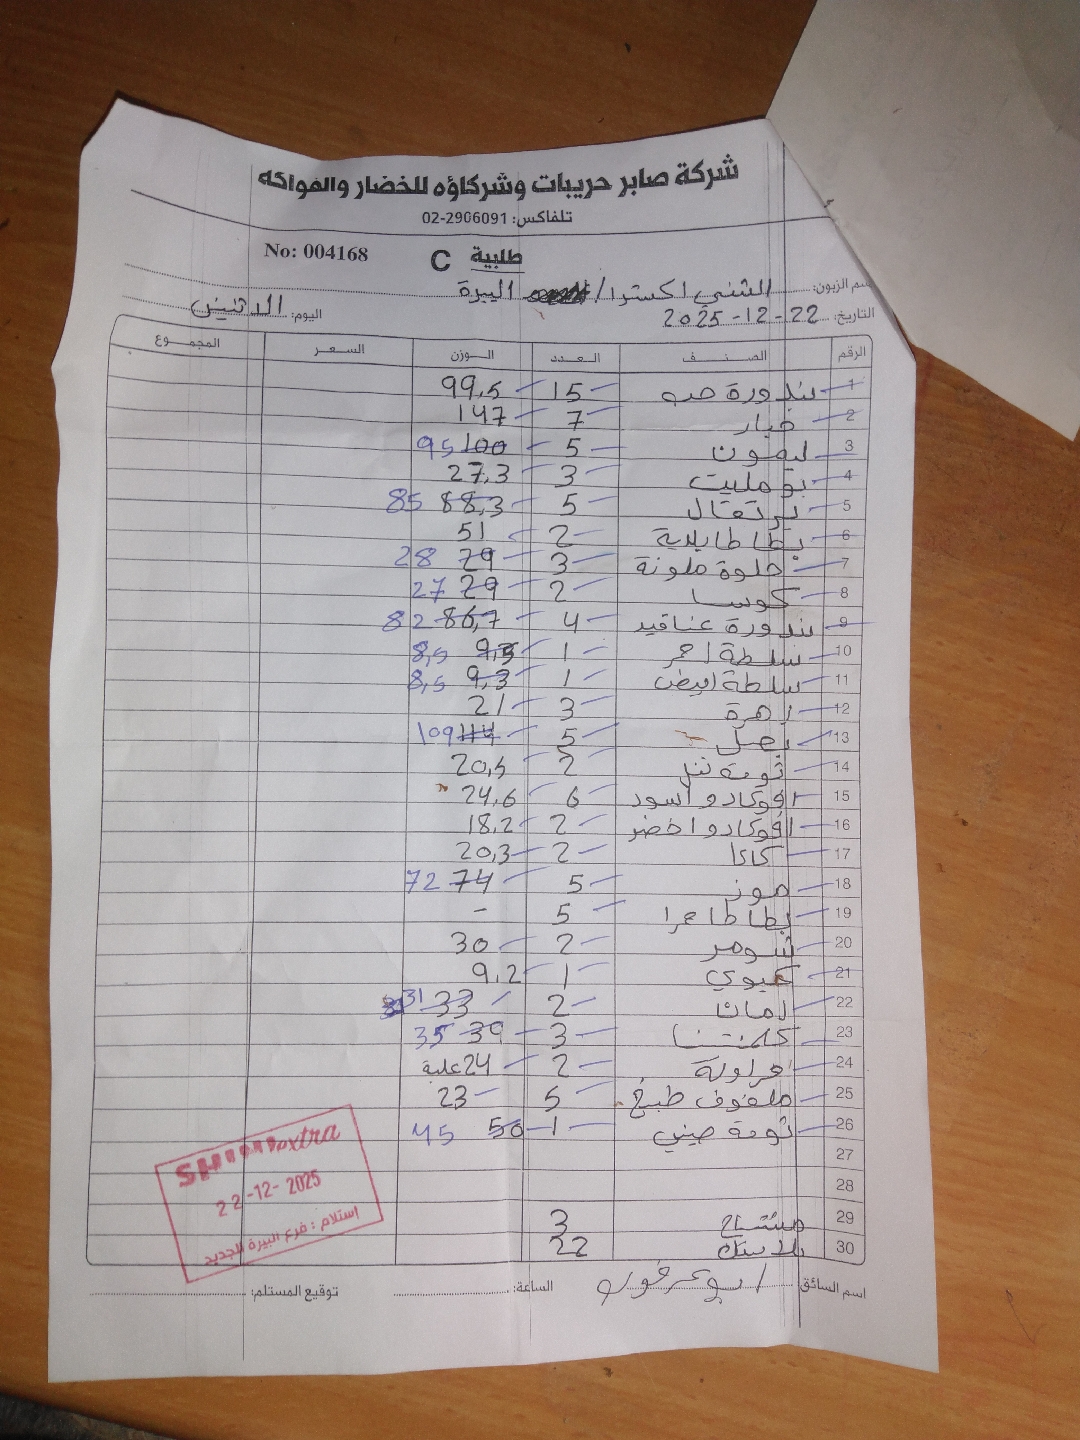 شركة صابر حريبات وشركاؤه للخضار والفواكه
تلفاكس: 02-2906091
No: 004168 C طلبية
اسم الزبون: الشني اكسترا / البيرة
التاريخ: 22-12-2025 اليوم: الاثنين
الرقم الصنف العدد الوزن السعر المجموع
1 بندورة حب 15 99,5
2 خيار 7 147
3 ليمون 5 100 95
4 بومليت 3 27,3
5 برتقال 5 88,3 85
6 بطاطا بلدية 2 51
7 حلوة ملونة 3 29 28
8 كوسا 2 29 27
9 بندورة عناقيد 4 86,7 82
10 سلطة احمر 1 9,3 8,5
11 سلطة ابيض 1 9,3 8,5
12 زهرة 3 21
13 بصل 5 114 109
14 ثومة 2 20,5
15 افوكادو اسود 6 24,6
16 افوكادو اخضر 2 18,2
17 كاكا 2 20,3
18 موز 5 74 72
19 بطاطا حمرا 5 -
20 شومر 2 30
21 كيوي 1 9,2
22 رمان 2 33 31
23 كلمنتينا 3 39 35
24 فراولة 2 24 علبة
25 ملفوف طبخ 5 23
26 ثومة صيني 1 50 45
27
28
29 مشتاح 3
30 بلاستك 22
اسم السائق: الساعة: توقيع المستلم:
SHINI extra
22-12-2025
استلام : فرع البيرة الجديد